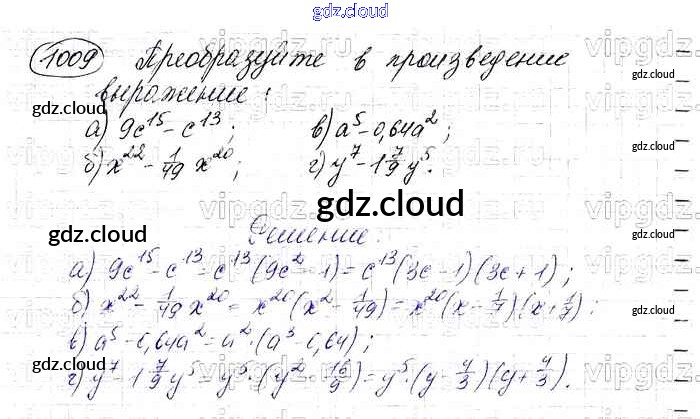 gdz.cloud
1009 Преобразуйте в произведение
выражение:
а) 9c¹⁵ - c¹³; в) a⁵ - 0,64a²;
б) x²² - 1/49 x²⁰; г) y⁷ - 1 7/9 y⁵.
Решение:
а) 9c¹⁵ - c¹³ = c¹³(9c² - 1) = c¹³(3c - 1)(3c + 1);
б) x²² - 1/49 x²⁰ = x²⁰(x² - 1/49) = x²⁰(x - 1/7)(x + 1/7);
в) a⁵ - 0,64a² = a²·(a³ - 0,64);
г) y⁷ - 1 7/9 y⁵ = y⁵·(y² - 16/9) = y⁵·(y - 4/3)(y + 4/3).
gdz.cloud
gdz.cloud
gdz.cloud
gdz.cloud
gdz.cloud
gdz.cloud
gdz.cloud